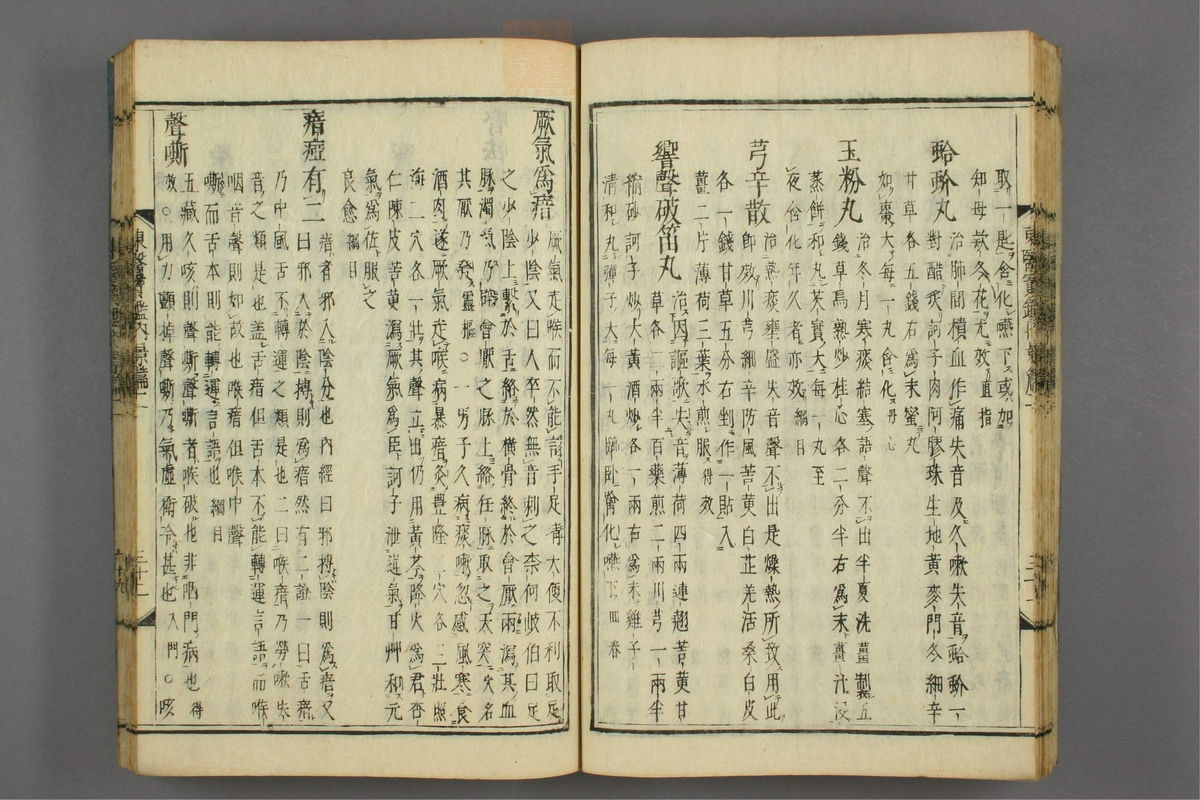 取一匙含化嚥下或加
知母款冬花尤效直指
蛤蚧丸 治肺間積血作痛失音及久嗽失音蛤蚧一
對醋炙訶子肉阿膠珠生地黃麥門冬細辛
甘草各五錢右爲末蜜丸
如棗大每一丸含化丹心
玉粉丸 治冬月寒痰結塞語聲不出半夏洗薑製五
錢草烏熟炒桂心各二分半右爲末薑汁浸
蒸餠和丸芡實大每一丸至
夜含化年久者亦效綱目
芎辛散 治熱痰壅盛失音聲不出是燥熱所致用此
卽效川芎細辛防風苦黃白芷羌活桑白皮
各一錢甘草五分右剉作一貼入
薑二片薄荷三葉水煎服得效
響聲破笛丸 治因謳歌失音薄荷四兩連翹苦黃甘
草各二兩半百藥煎二兩川芎一兩半
縮砂訶子炒大黃酒炒各一兩右爲末雞子
淸和丸彈子大每一丸臨臥噙化嚥下回春
厥氣爲瘖 厥氣走喉而不能言手足淸大便不利取足
少陰又曰人卒然無音刺之奈何歧伯曰足
之少陰上繫於舌絡於橫骨終於會厭兩瀉其血
脉濁氣乃辟會厭之脉上絡任脉取之天突穴名
其厭乃發靈樞○一男子久病痰嗽忽感風寒食
酒肉遂厥氣走喉病暴瘖灸豐隆二穴各三壯照
海二穴各一壯其聲立出仍用黃芩降火爲君杏
仁陳皮苦黃瀉厥氣爲臣訶子泄逆氣甘艸和元
氣爲佐服之
良愈綱目
瘖瘂有二 瘖者邪入陰分也內經曰邪搏陰則爲瘖又
曰邪入於陰搏則爲瘖然有二證一曰舌瘖
乃中風舌不轉運之類是也二曰喉瘖乃勞嗽失
音之類是也盖舌瘖但舌本不能轉運言語而喉
咽音聲則如故也喉瘖但喉中聲
嘶而舌本則能轉運言語也綱目
聲嘶 五藏久咳則聲嘶聲嘶者喉破也非咽門病也得
效○用力顫掉聲嘶乃氣虛衛冷甚也入門○咳
東醫寶鑑內景篇二
三十二